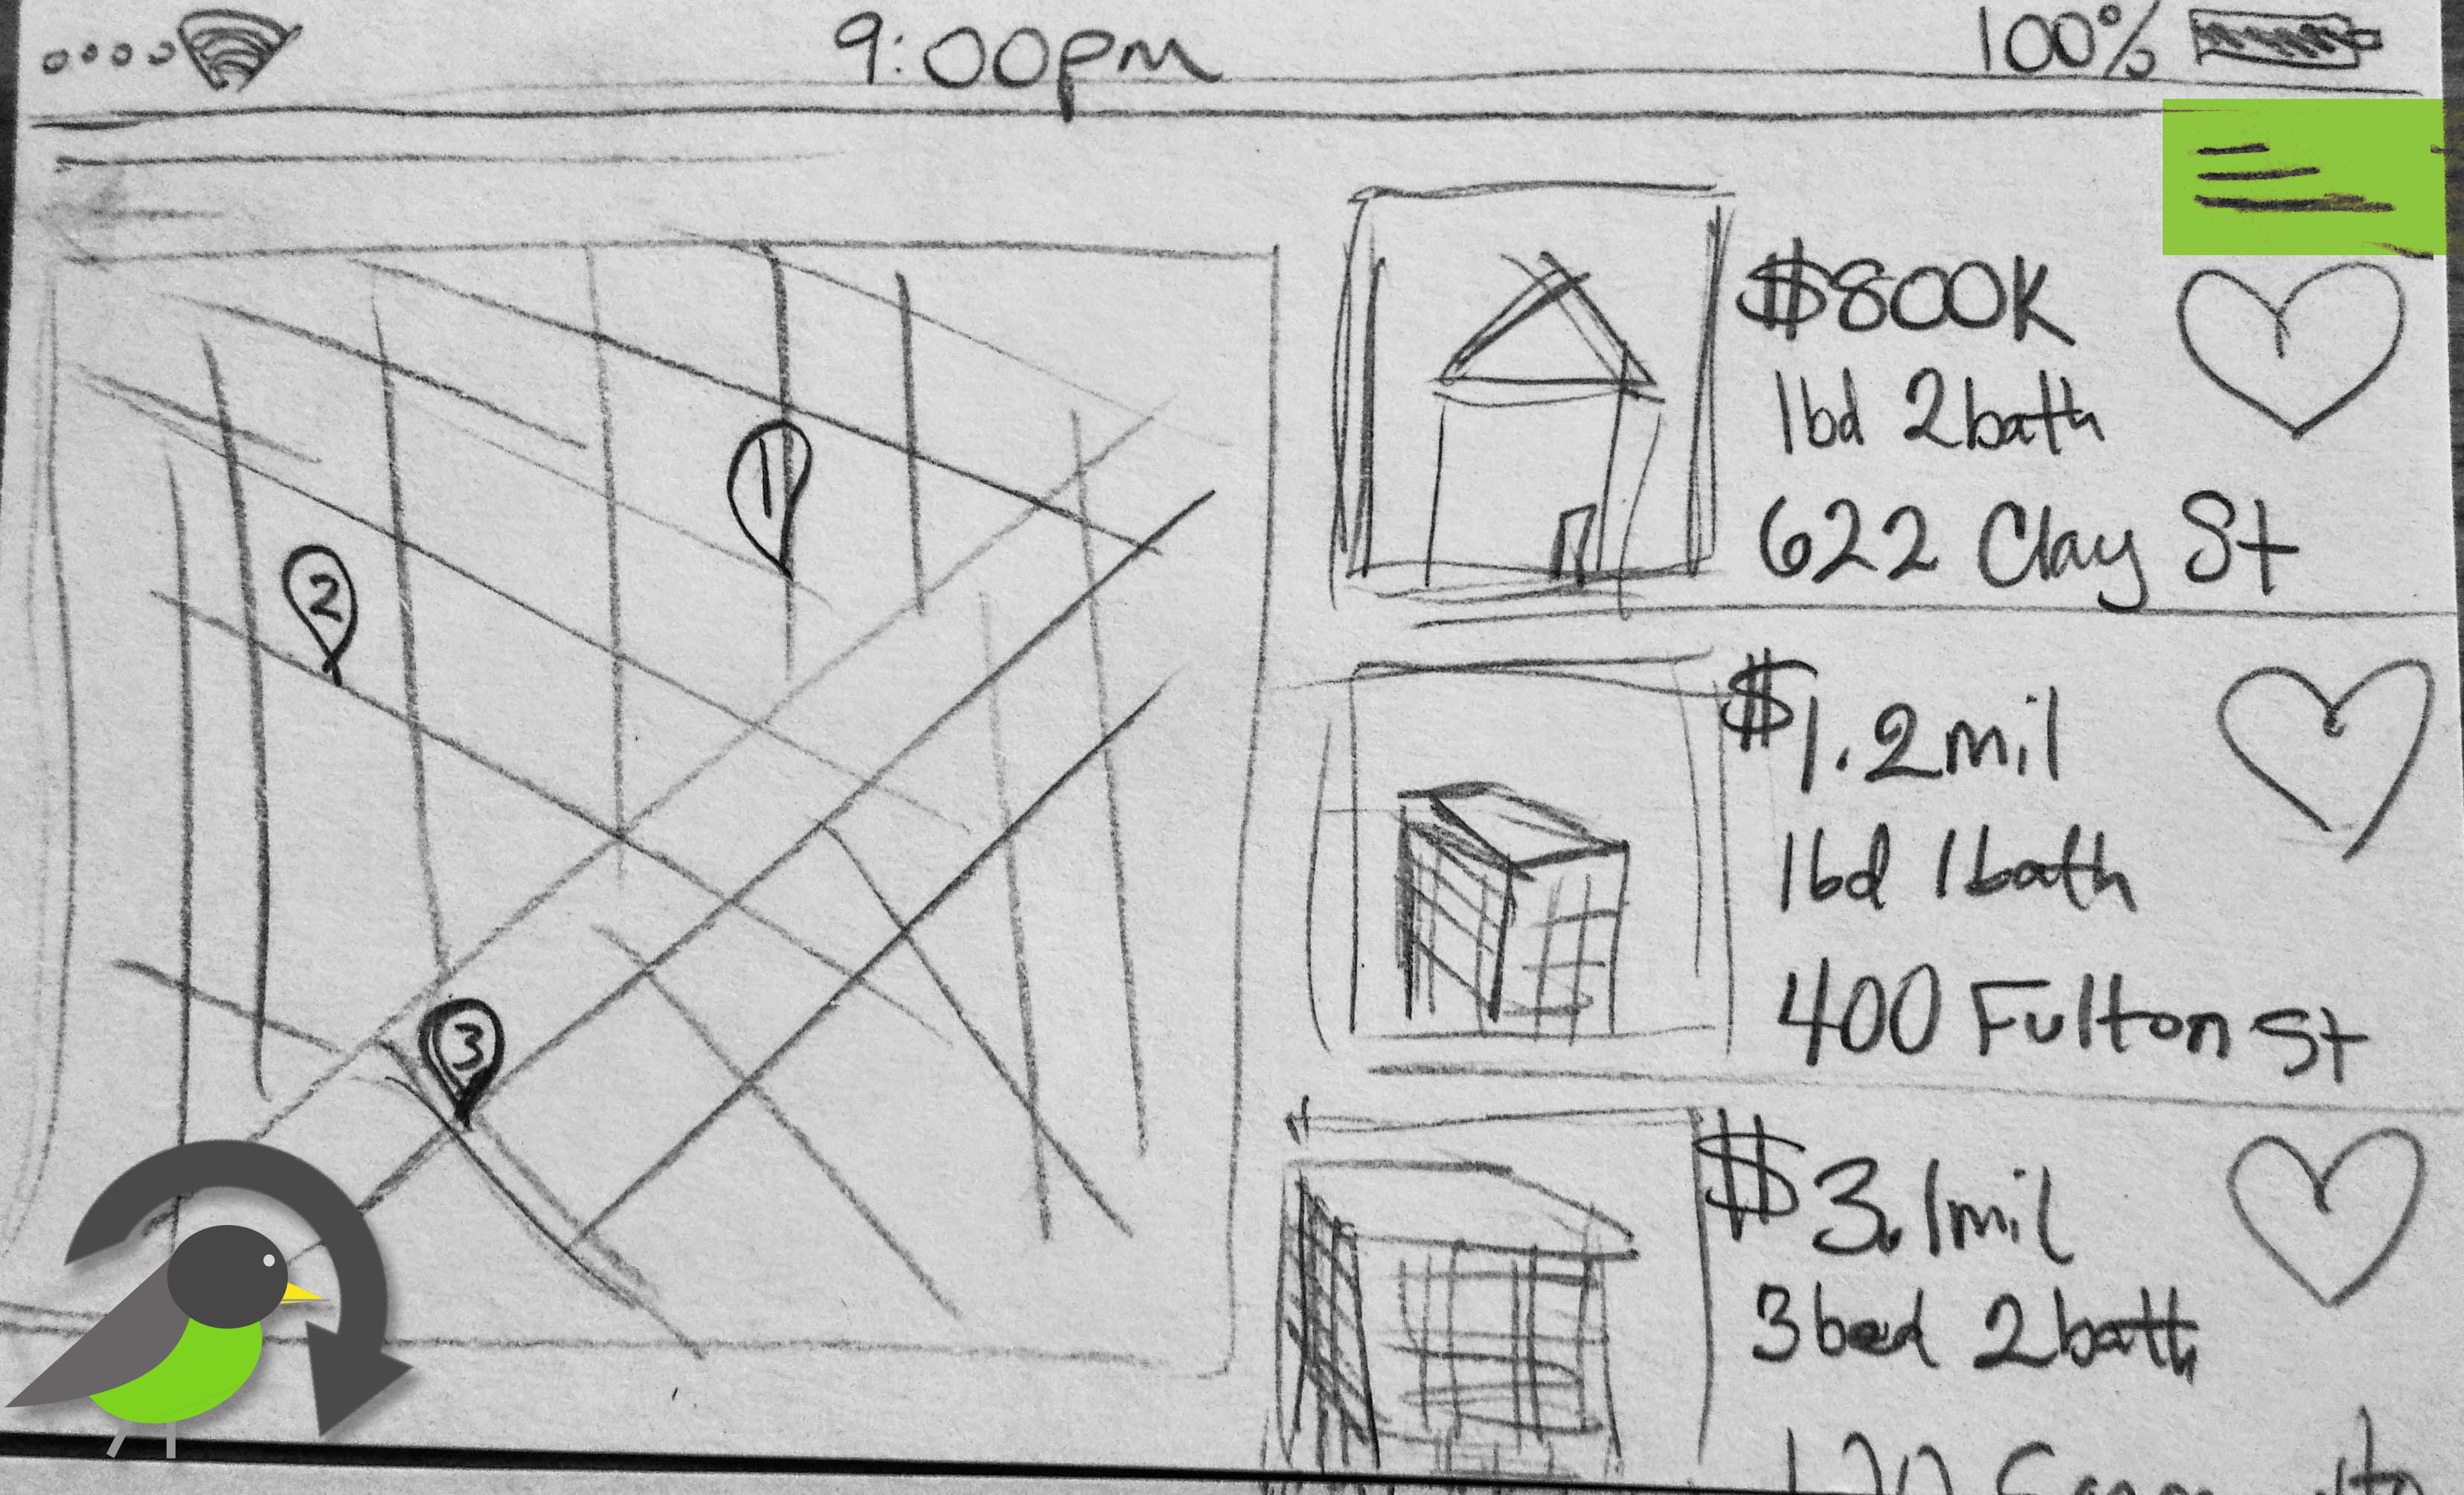 9:00pm
100%
1
2
3
$800K
1bd 2bath
622 Clay St
$1.2mil
1bd 1bath
400 Fulton St
$3.1mil
3bed 2bath